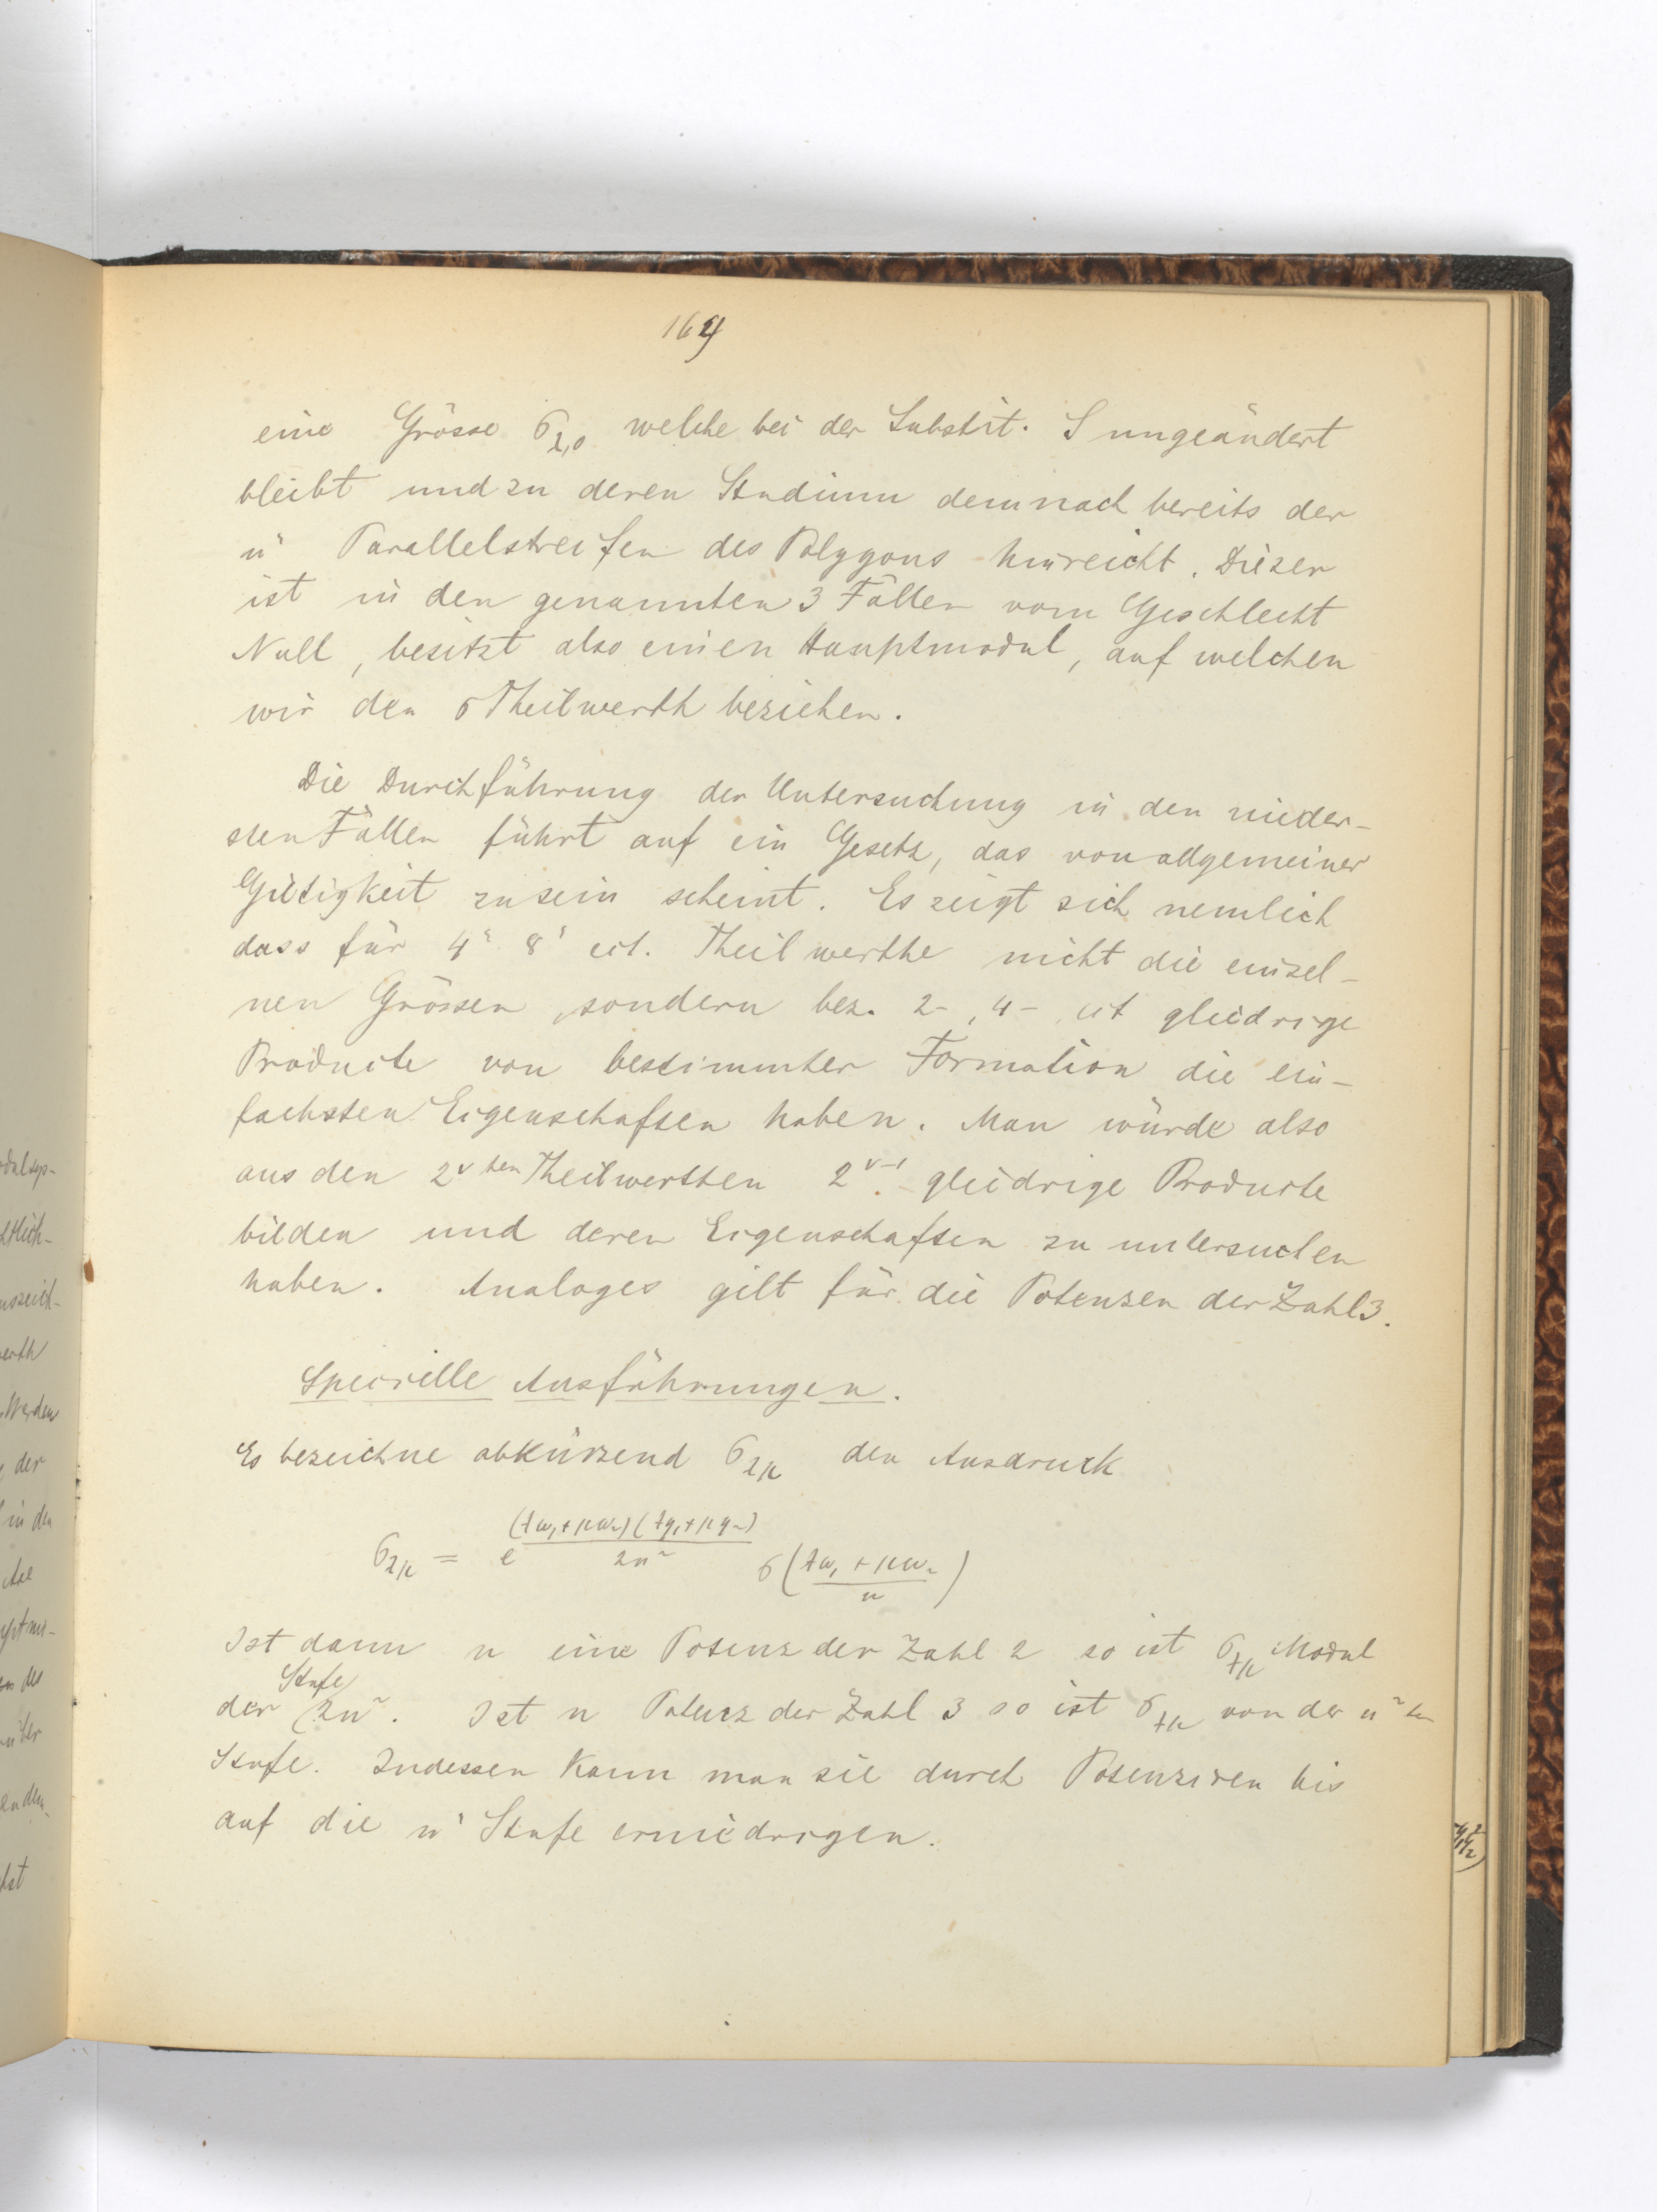 164
eine Grösse σ_{λ,0} welche bei der Substit. S ungeändert
bleibt und zu deren Studium demnach bereits der
n" Parallelstreifen des Polygons hinreicht. Dieser
ist in den genannten 3 Fällen vom Geschlecht
Null, besitzt also einen Hauptmodul, auf welchen
wir den σ Theilwerth beziehen.
Die Durchführung der Untersuchung in den nieder-
sten Fällen führt auf ein Gesetz, das von allgemeiner
Gültigkeit zu sein scheint. Es zeigt sich nemlich
dass für 4" 8" ect. Theilwerthe nicht die einzel-
nen Grössen, sondern bez. 2-, 4-, ect gliedrige
Producte von bestimmter Formation die ein-
fachsten Eigenschaften haben. Man würde also
aus den 2^{ν ten} Theilwerthen 2^{ν-1} gliedrige Producte
bilden und deren Eigenschaften zu untersuchen
haben. Analoges gilt für die Potenzen der Zahl 3.
Specielle Ausführungen.
Es bezeichne abkürzend σ_{λμ} den Ausdruck
σ_{λμ} = e^{\frac{(λω_1+μω_2)(λη_1+μη_2)}{2n^2}} σ(\frac{λω_1+μω_2}{n})
Ist dann n eine Potenz der Zahl 2 so ist σ_{λμ} Modul
der Stufe 2n^2. Ist n Potenz der Zahl 3 so ist σ_{λμ} von der n^2 ten
Stufe. Indessen kann man sie durch Potenziren bis
auf die n" Stufe erniedrigen.